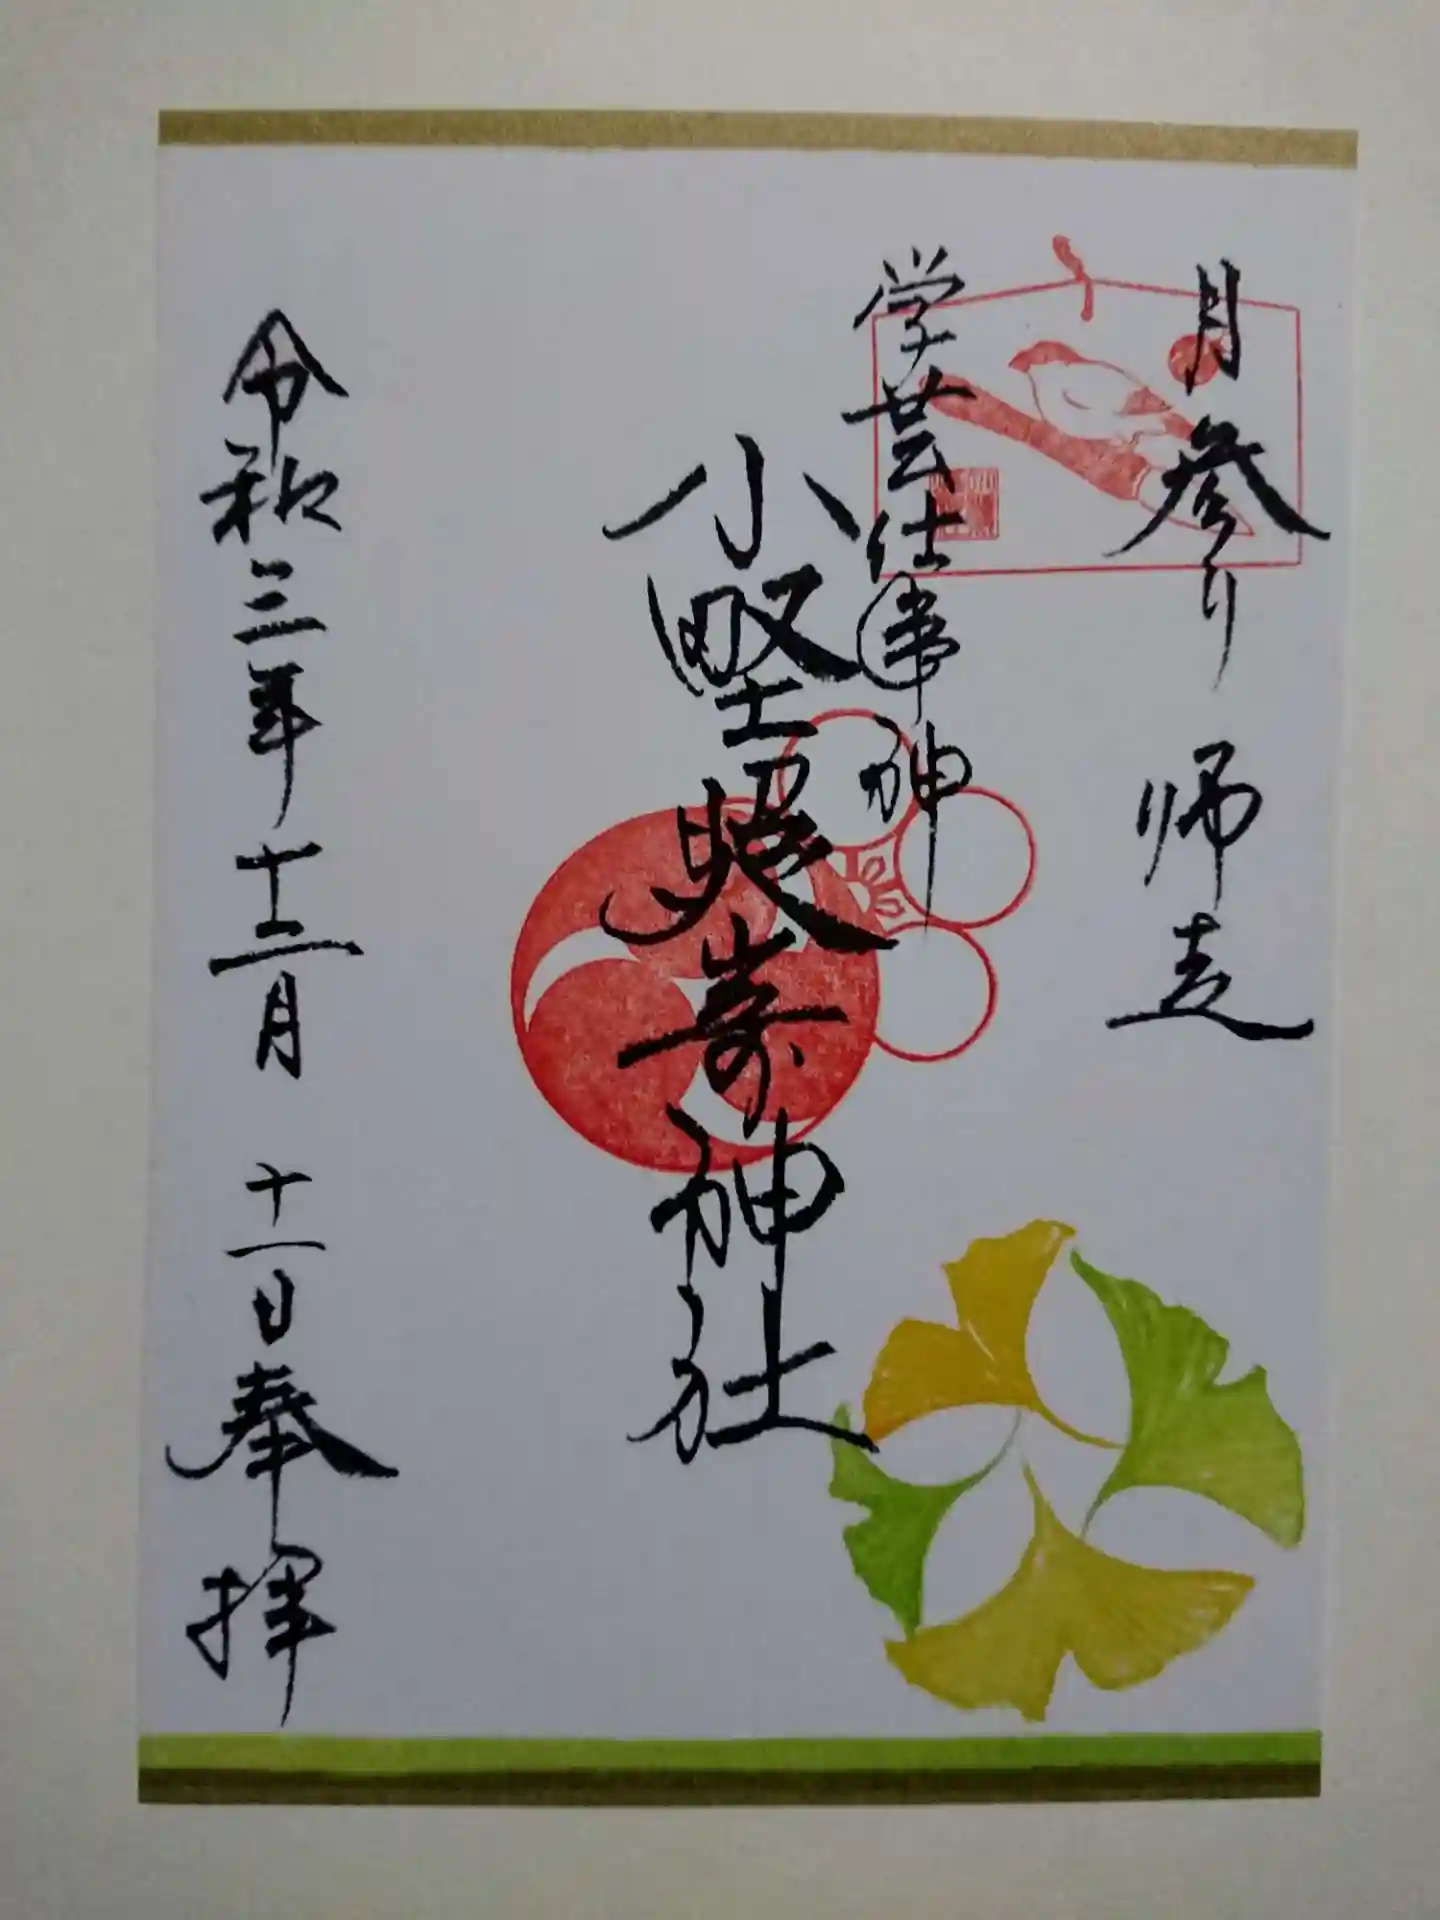 月参り 师走
学芸仕事神
小野照崎神社
令和三年十二月 十一日奉拝